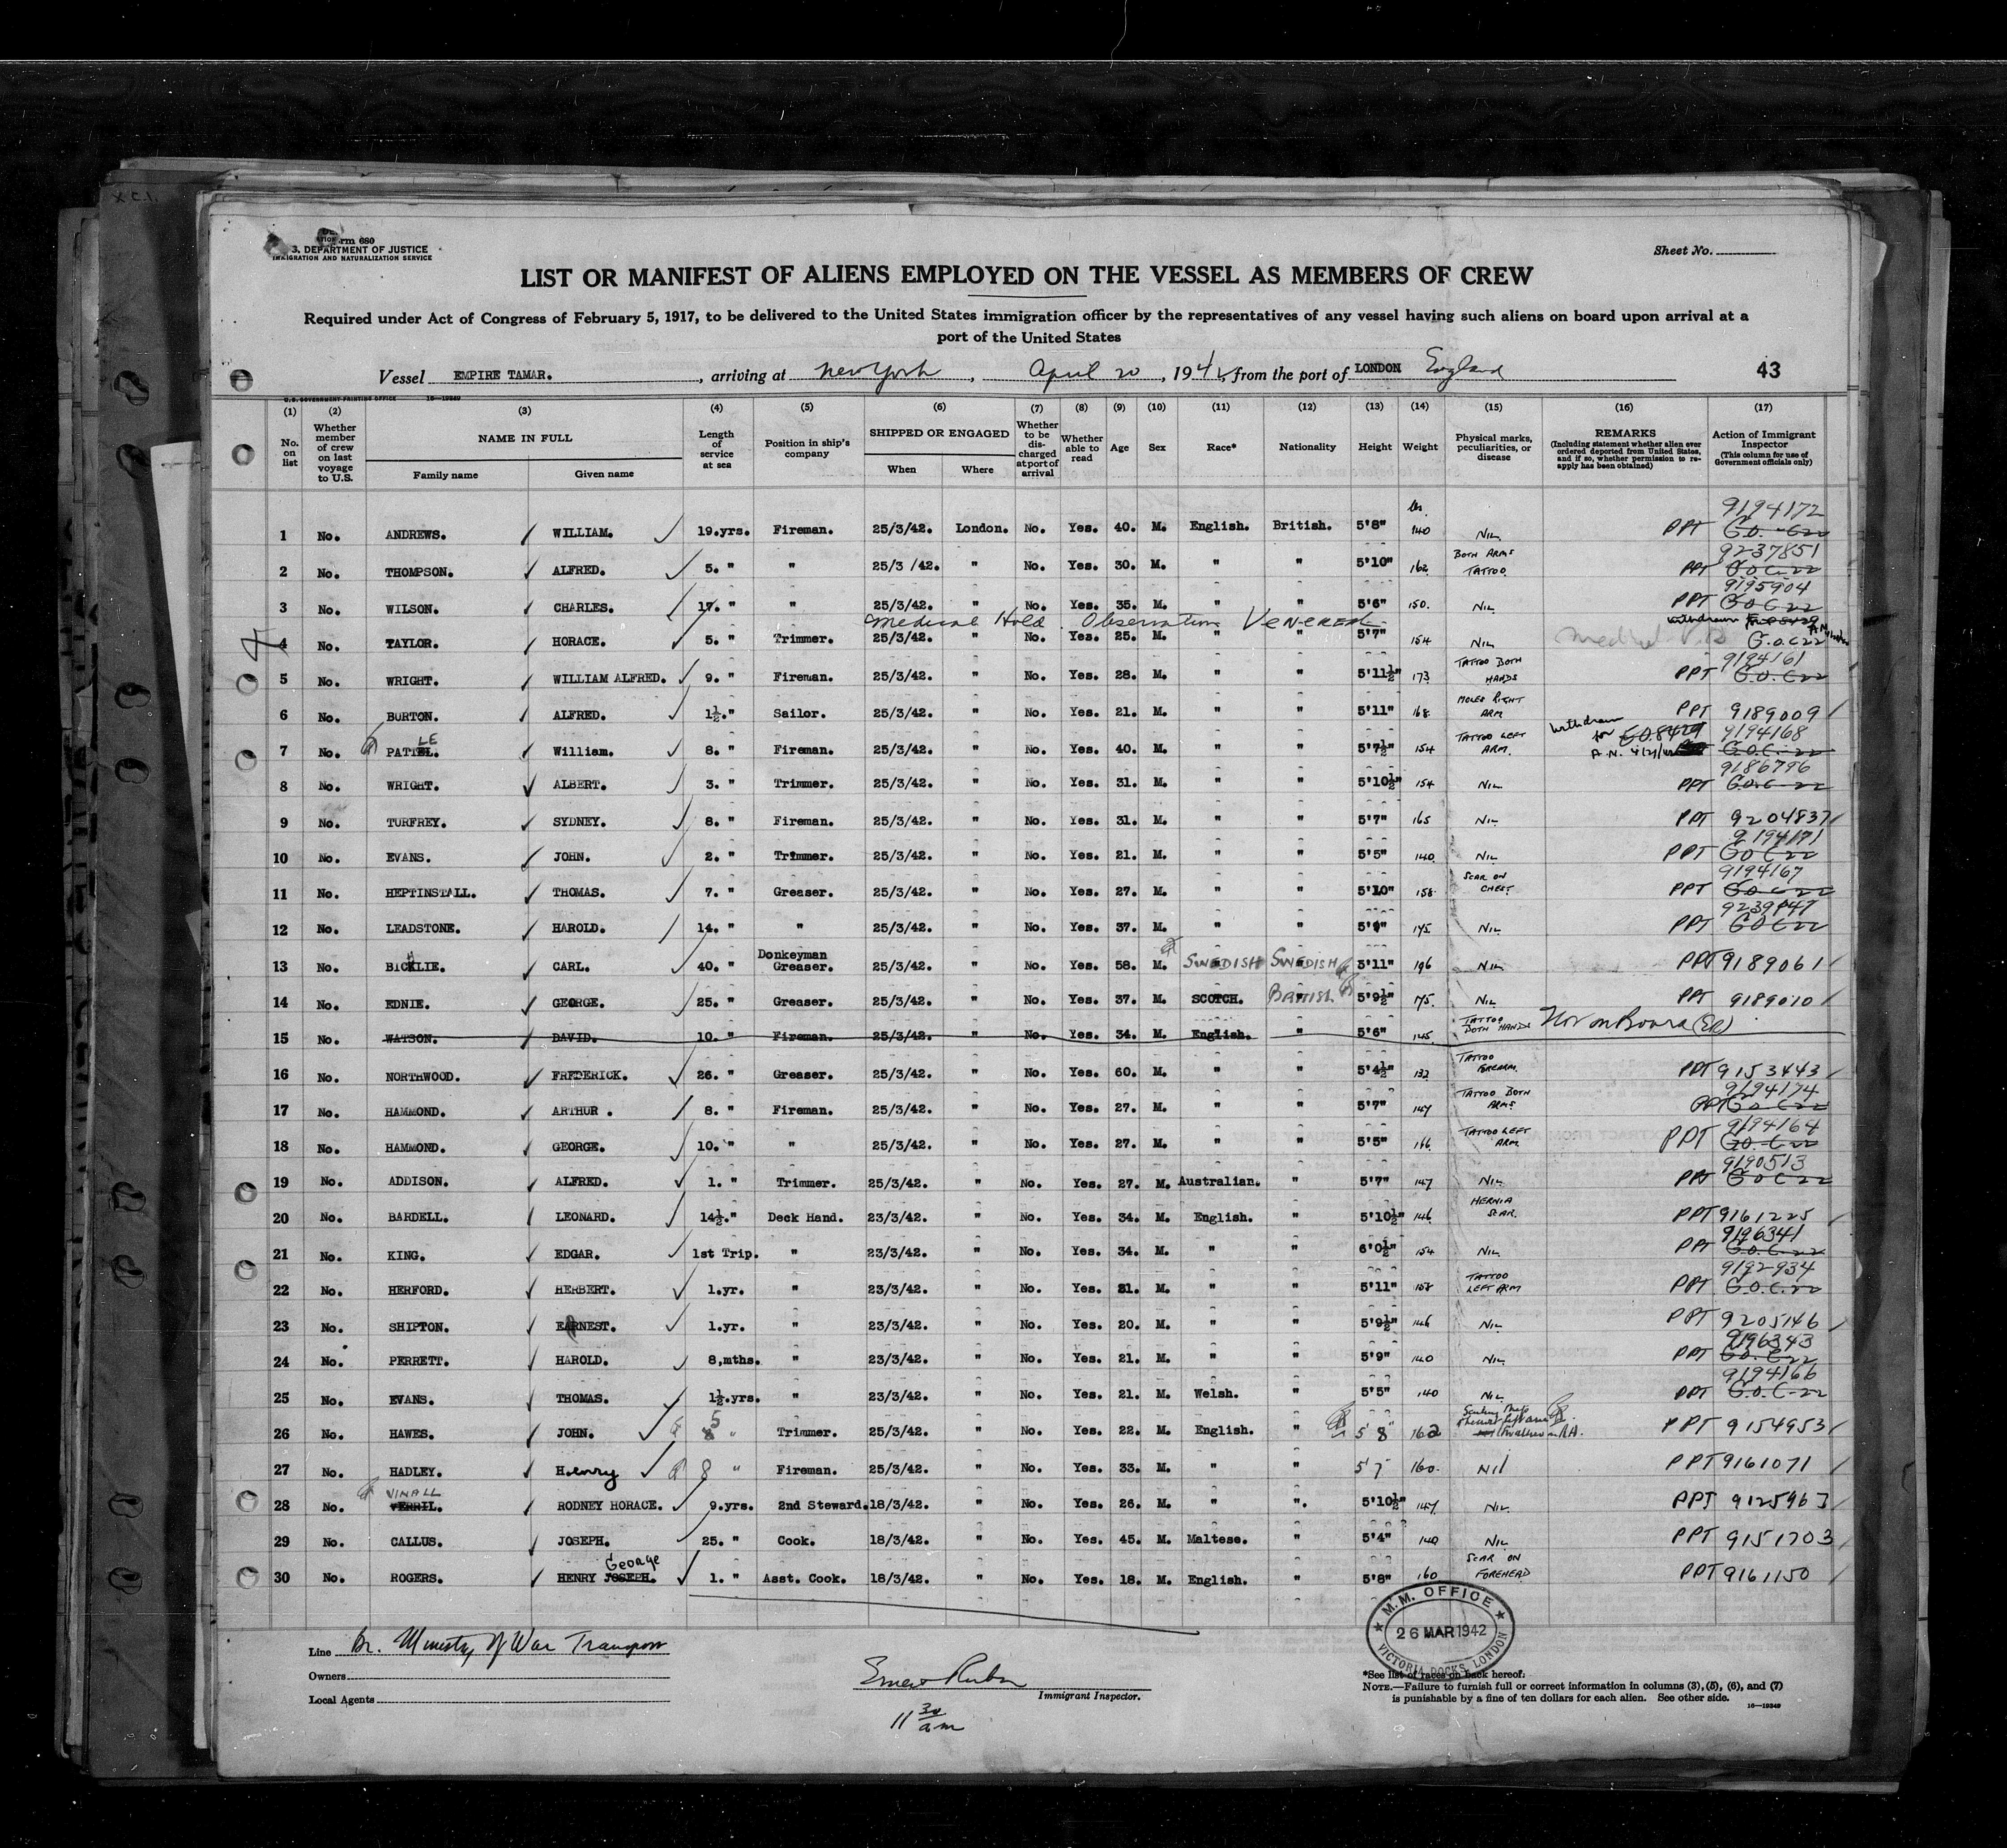 Form 680
DEPARTMENT OF JUSTICE
IMMIGRATION AND NATURALIZATION SERVICE
Sheet No.
LIST OR MANIFEST OF ALIENS EMPLOYED ON THE VESSEL AS MEMBERS OF CREW
Required under Act of Congress of February 5, 1917, to be delivered to the United States immigration officer by the representatives of any vessel having such aliens on board upon arrival at a
port of the United States
Vessel EMPIRE TAMAR. , arriving at New York , April 20 , 1942, from the port of LONDON England 43
U.S. GOVERNMENT PRINTING OFFICE 16—19349
(1) (2) (3) (4) (5) (6) (7) (8) (9) (10) (11) (12) (13) (14) (15) (16) (17)
No. on list Whether member of crew on last voyage to U.S. NAME IN FULL Family name Given name Length of service at sea Position in ship's company SHIPPED OR ENGAGED When Where Whether to be discharged at port of arrival Whether able to read Age Sex Race* Nationality Height Weight Physical marks, peculiarities, or disease REMARKS (Including statement whether alien ever ordered deported from United States, and if so, whether permission to reapply has been obtained) Action of Immigrant Inspector (This column for use of Government officials only)
1 No. ANDREWS. WILLIAM. 19.yrs. Fireman. 25/3/42. London. No. Yes. 40. M. English. British. 5'8" lbs. 140 NIL PPT 9194172 G.O. C22
2 No. THOMPSON. ALFRED. 5. " " 25/3 /42. " No. Yes. 30. M. " " 5'10" 162 BOTH ARMS TATTOO. PPT 9237851 G.O.C.22
3 No. WILSON. CHARLES. 17. " " 25/3/42. " No. Yes. 35. M. " " 5'6" 150. NIL PPT 9195904 G.O.C22
Medical Hold. Observation VENEREAL withdrawn
4 No. TAYLOR. HORACE. 5. " Trimmer. 25/3/42. " No. Yes. 25. M. " " 5'7" 154 NIL Medical G.O.C22
5 No. WRIGHT. WILLIAM ALFRED. 9. " Fireman. 25/3/42. " No. Yes. 28. M. " " 5'11½" 173 TATTOO BOTH HANDS PPT 9194161 G.O. C22
6 No. BURTON. ALFRED. 1½." Sailor. 25/3/42. " No. Yes. 21. M. " " 5'11" 168 MOLES RIGHT ARM PPT 9189009
7 No. PATTLE. William. 8. " Fireman. 25/3/42. " No. Yes. 40. M. " " 5'7½" 154 TATTOO LEFT ARM. Withdrawn for A.N. 9194168 G.O.C.-22
8 No. WRIGHT. ALBERT. 3. " Trimmer. 25/3/42. " No. Yes. 31. M. " " 5'10½" 154 NIL PPT 9186796 G.O.C-22
9 No. TURFREY. SYDNEY. 8. " Fireman. 25/3/42. " No. Yes. 31. M. " " 5'7" 165 NIL PPT 9204837
10 No. EVANS. JOHN. 2. " Trimmer. 25/3/42. " No. Yes. 21. M. " " 5'5" 140 NIL PPT 9194171 GOC22
11 No. HEPTINSTALL. THOMAS. 7. " Greaser. 25/3/42. " No. Yes. 27. M. " " 5'10" 158 SCAR ON CHEST. PPT 9194167 G.O. C22
12 No. LEADSTONE. HAROLD. 14. " " 25/3/42. " No. Yes. 37. M. " " 5'9" 175 NIL PPT GOC22
13 No. CARL. 40. " Donkeyman Greaser. 25/3/42. " No. Yes. 58. M. SWEDISH SWEDISH 5'11" 196 NIL PPT 9189061
14 No. EDNIE. GEORGE. 25. " Greaser. 25/3/42. " No. Yes. 37. M. SCOTCH. BRITISH 5'9½" 175. NIL PPT 9189010
15 No. WATSON. DAVID. 10. " Fireman. 25/3/42. " No. Yes. 34. M. English. " 5'6" 145 TATTOO BOTH HANDS Not on Board (ER)
16 No. NORTHWOOD. FREDERICK. 26. " Greaser. 25/3/42. " No. Yes. 60. M. " " 5'4½" 132 TATTOO FOREARM. PPT 9153443
17 No. HAMMOND. ARTHUR . 8. " Fireman. 25/3/42. " No. Yes. 27. M. " " 5'7" 147 TATTOO BOTH ARMS PPT 9194174 G.O. C22
18 No. HAMMOND. GEORGE. 10. " " 25/3/42. " No. Yes. 27. M. " " 5'5" 166 TATTOO LEFT ARM. PPT 9194164 G.O. C-22
19 No. ADDISON. ALFRED. 1. " Trimmer. 25/3/42. " No. Yes. 27. M. Australian. " 5'7" 147 NIL PPT 9190513 G.O C22
20 No. BARDELL. LEONARD. 14½." Deck Hand. 23/3/42. " No. Yes. 34. M. English. " 5'10½" 146 HERNIA SCAR. PPT 9161225
21 No. KING. EDGAR. 1st Trip. " 23/3/42. " No. Yes. 34. M. " " 6'0½" 154 NIL PPT 9196341 G.O. C-22
22 No. HERFORD. HERBERT. 1.yr. " 23/3/42. " No. Yes. 21. M. " " 5'11" 158 TATTOO LEFT ARM PPT 9192934 G.O.C.22
23 No. SHIPTON. ERNEST. 1.yr. " 23/3/42. " No. Yes. 20. M. " " 5'9½" 146 NIL PPT 9205146
24 No. PERRETT. HAROLD. 8,mths. " 23/3/42. " No. Yes. 21. M. " " 5'9" 140 NIL PPT 9196343 G.O. C-22
25 No. EVANS. THOMAS. 1½.yrs. " 23/3/42. " No. Yes. 21. M. Welsh. " 5'5" 140 NIL PPT 9194166 G.O.C-22
26 No. HAWES. JOHN. 5 " Trimmer. 25/3/42. " No. Yes. 22. M. English. " 5'8" 162 PPT 9154953
27 No. HADLEY. Henry 8 " Fireman. 25/3/42. " No. Yes. 33. M. " " 5'7 160. Nil PPT 9161071
28 No. VINALL VERRIL. RODNEY HORACE. 9.yrs. 2nd Steward. 18/3/42. " No. Yes. 26. M. " ". 5'10½" 147 NIL PPT 9125963
29 No. CALLUS. JOSEPH. 25. " Cook. 18/3/42. " No. Yes. 45. M. Maltese. " 5'4" 140 NIL PPT 9151703
30 No. ROGERS. HENRY JOSEPH. George 1. " Asst. Cook. 18/3/42. " No. Yes. 18. M. English. " 5'8" 160 SCAR ON FOREHEAD PPT 9161150
M. M. OFFICE
26 MAR 1942
VICTORIA DOCKS, LONDON
Line Br. Ministry of War Transport
Owners
Local Agents
Immigrant Inspector.
11 30 am
*See list of races on back hereof.
NOTE.—Failure to furnish full or correct information in columns (3), (5), (6), and (7)
is punishable by a fine of ten dollars for each alien. See other side. 16—19349